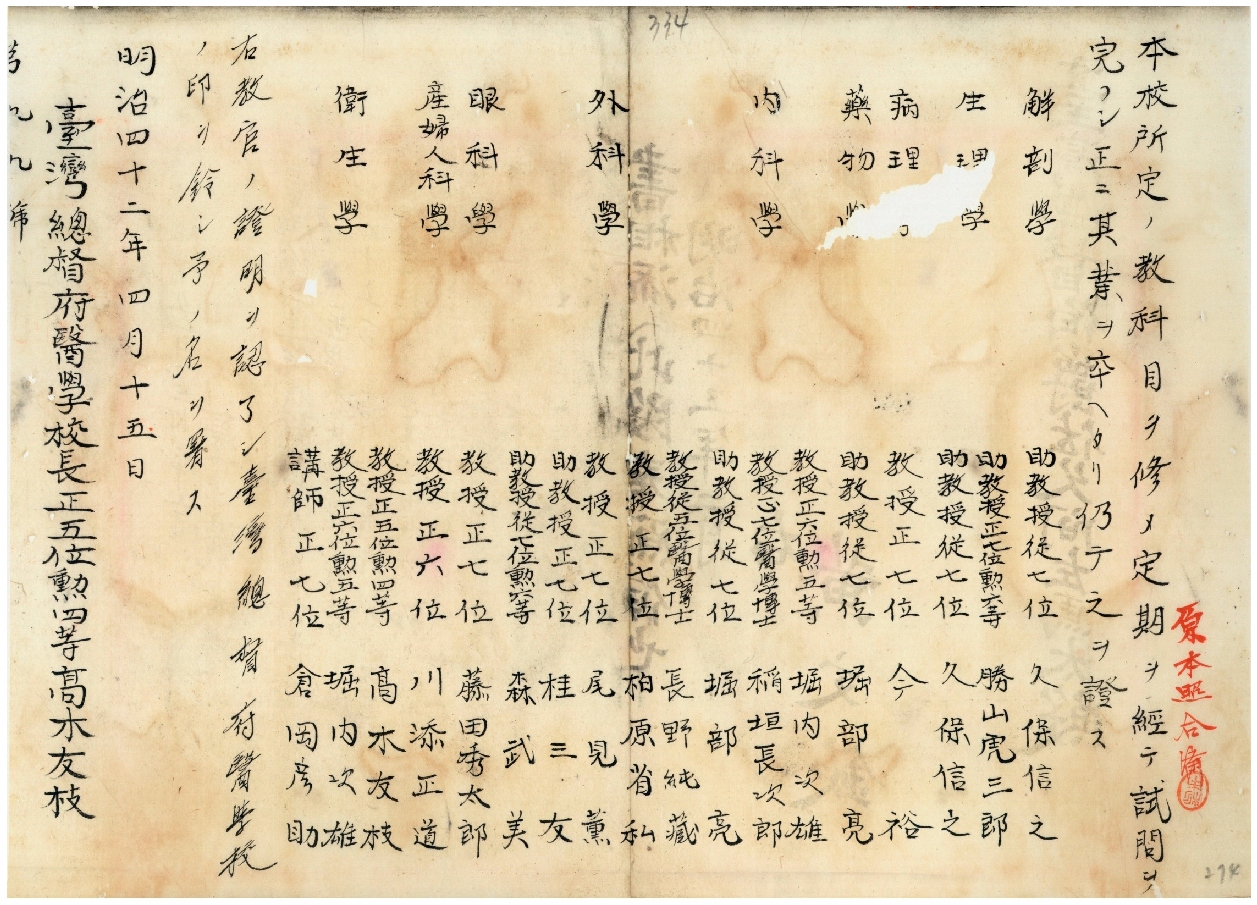 334
本校所定ノ教科目ヲ修メ定期ヲ經テ試問ヲ
完フシ正ニ其業ヲ卒ヘタリ仍テ之ヲ證ス
原本照合濟
解剖學
助教授從七位 久保信之
助教授正七位勳六等 勝山虎三郎
生理学
助教授從七位 久保信之
病理
教授正七位 今裕
藥物
助教授從七位 堀部亮
教授正六位勳五等 堀内次雄
內科學
教授正七位醫學博士 稲垣長次郎
助教授從七位 堀部亮
教授從五位醫學博士 長野純藏
教授正七位 柏原省私
外科學
教授正七位 尾見薫
助教授正七位 桂三友
助教授從七位勳六等 森武美
眼科學
教授正七位 藤田秀太郎
産婦人科學
教授正六位 川添正道
教授正五位勳四等 高木友枝
衛生學
教授正六位勳五等 堀内次雄
講師正七位 倉岡彦助
右教官ノ證明ヲ認了シ臺灣總督府醫學校
ノ印ヲ鈴シ予ノ名ヲ署ス
明治四十二年四月十五日
臺灣總督府醫學校長正五位勳四等高木友枝
第九九號
274